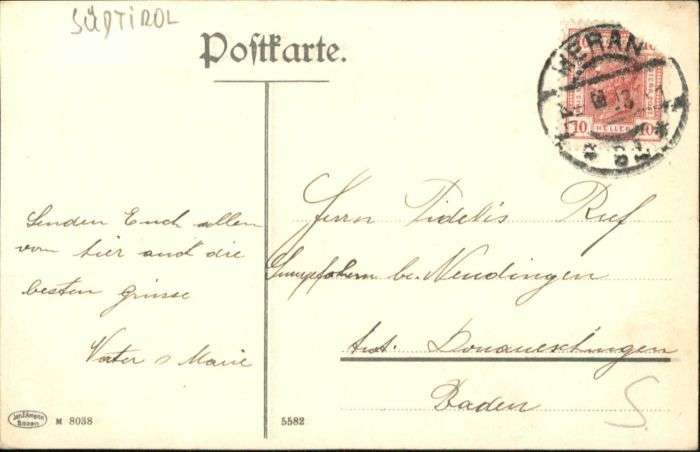 SÜDTIROL
Postkarte.
MERAN
10
HELLER
10
Senden Euch allen
von hier aus die
besten Grüsse
Vater u Marie
Herrn Fidelis Rief
bei Neudingen
Amt. Donaueschingen
Baden
S.
Joh. F. Amonn
Bozen
M 8038
5582